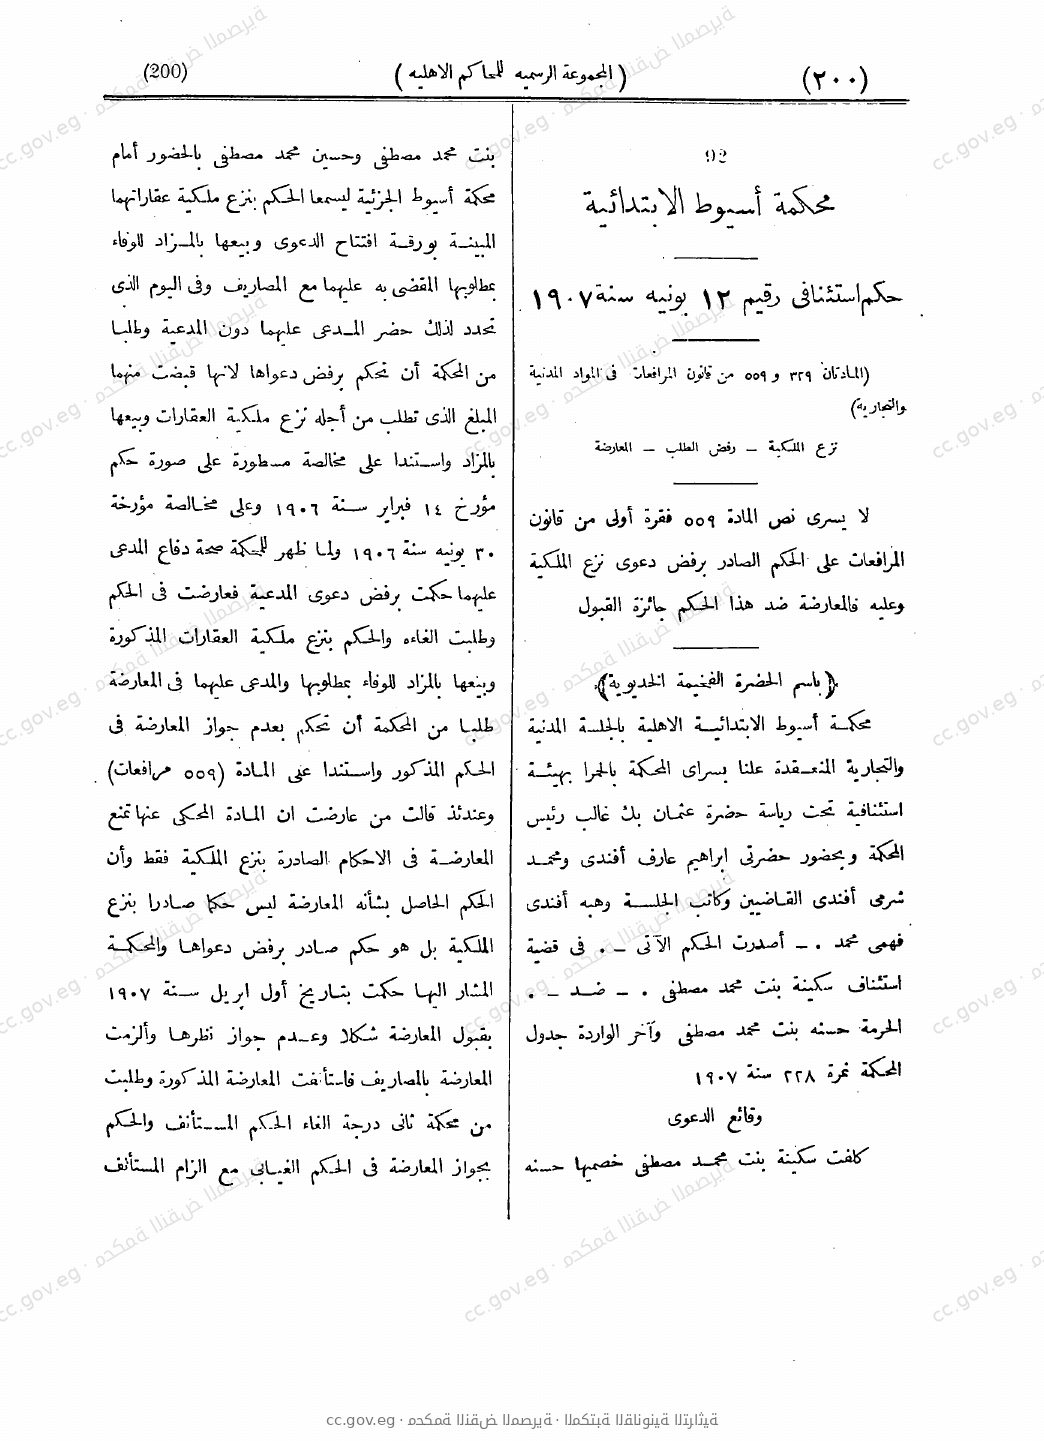 (٢٠٠)
( المجموعة الرسميه للمحاكم الاهليه )
(200)
92
محكمة أسيوط الابتدائية
حكم استئنافى رقيم ١٢ يونيه سنة ١٩٠٧
(المادتان ٣٢٩ و ٥٥٩ من قانون المرافعات فى المواد المدنية
والتجارية)
نزع الملكية ـ رفض الطلب ـ المعارضة
لا يسرى نص المادة ٥٥٩ فقرة أولى من قانون
المرافعات على الحكم الصادر برفض دعوى نزع الملكية
وعليه فالمعارضة ضد هذا الحكم جائزة القبول
﴿باسم الحضرة الفخيمة الخديوية﴾
محكمة أسيوط الابتدائية الاهلية بالجلسة المدنية
والتجارية المنعقدة علنا بسراى المحكمة بالحمرا بهيئة
استئنافية تحت رياسة حضرة عثمان بك غالب رئيس
المحكمة وبحضور حضرتى ابراهيم عارف أفندى ومحمد
شرمى أفندى القاضيين وكاتب الجلسة وهبه أفندى
فهمى محمد . ـ أصدرت الحكم الآتى ـ . فى قضية
استئناف سكينة بنت محمد مصطفى . ـ ضد ـ .
الحرمة حسنه بنت محمد مصطفى وآخر الواردة جدول
المحكمة نمرة ٢٢٨ سنة ١٩٠٧
وقائع الدعوى
كلفت سكينة بنت محمد مصطفى خصميها حسنه
بنت محمد مصطفى وحسين محمد مصطفى بالحضور أمام
محكمة أسيوط الجزئية ليسمعا الحكم بنزع ملكية عقاراتهما
المبينة بورقة افتتاح الدعوى وبيعها بالمزاد للوفاء
بمطلوبها المقضى به عليهما مع المصاريف وفى اليوم الذى
تحدد لذلك حضر المدعى عليهما دون المدعية وطلبا
من المحكمة أن تحكم برفض دعواها لانها قبضت منهما
المبلغ الذى تطلب من أجله نزع ملكية العقارات وبيعها
بالمزاد واستندا على مخالصة مسطورة على صورة حكم
مؤرخ ١٤ فبراير سنة ١٩٠٦ وعلى مخالصة مؤرخة
٣٠ يونيه سنة ١٩٠٦ ولما ظهر للمحكمة صحة دفاع المدعى
عليهما حكمت برفض دعوى المدعية فعارضت فى الحكم
وطلبت الغاءه والحكم بنزع ملكية العقارات المذكورة
وبيعها بالمزاد للوفاء بمطلوبها والمدعى عليهما فى المعارضة
طلبا من المحكمة أن تحكم بعدم جواز المعارضة فى
الحكم المذكور واستندا على المادة (٥٥٩ مرافعات)
وعندئذ قالت من عارضت ان المادة المحكى عنها تمنع
المعارضة فى الاحكام الصادرة بنزع الملكية فقط وأن
الحكم الحاصل بشأنه المعارضة ليس حكما صادرا بنزع
الملكية بل هو حكم صادر برفض دعواها والمحكمة
المشار اليها حكمت بتاريخ أول ابريل سنة ١٩٠٧
بقبول المعارضة شكلا وعدم جواز نظرها وألزمت
المعارضة بالمصاريف فاستأنفت المعارضة المذكورة وطلبت
من محكمة ثانى درجة الغاء الحكم المستأنف والحكم
بجواز المعارضة فى الحكم الغيابى مع الزام المستأنف
cc.gov.eg · محكمة النقض المصرية · المكتبة القانونية التراثية